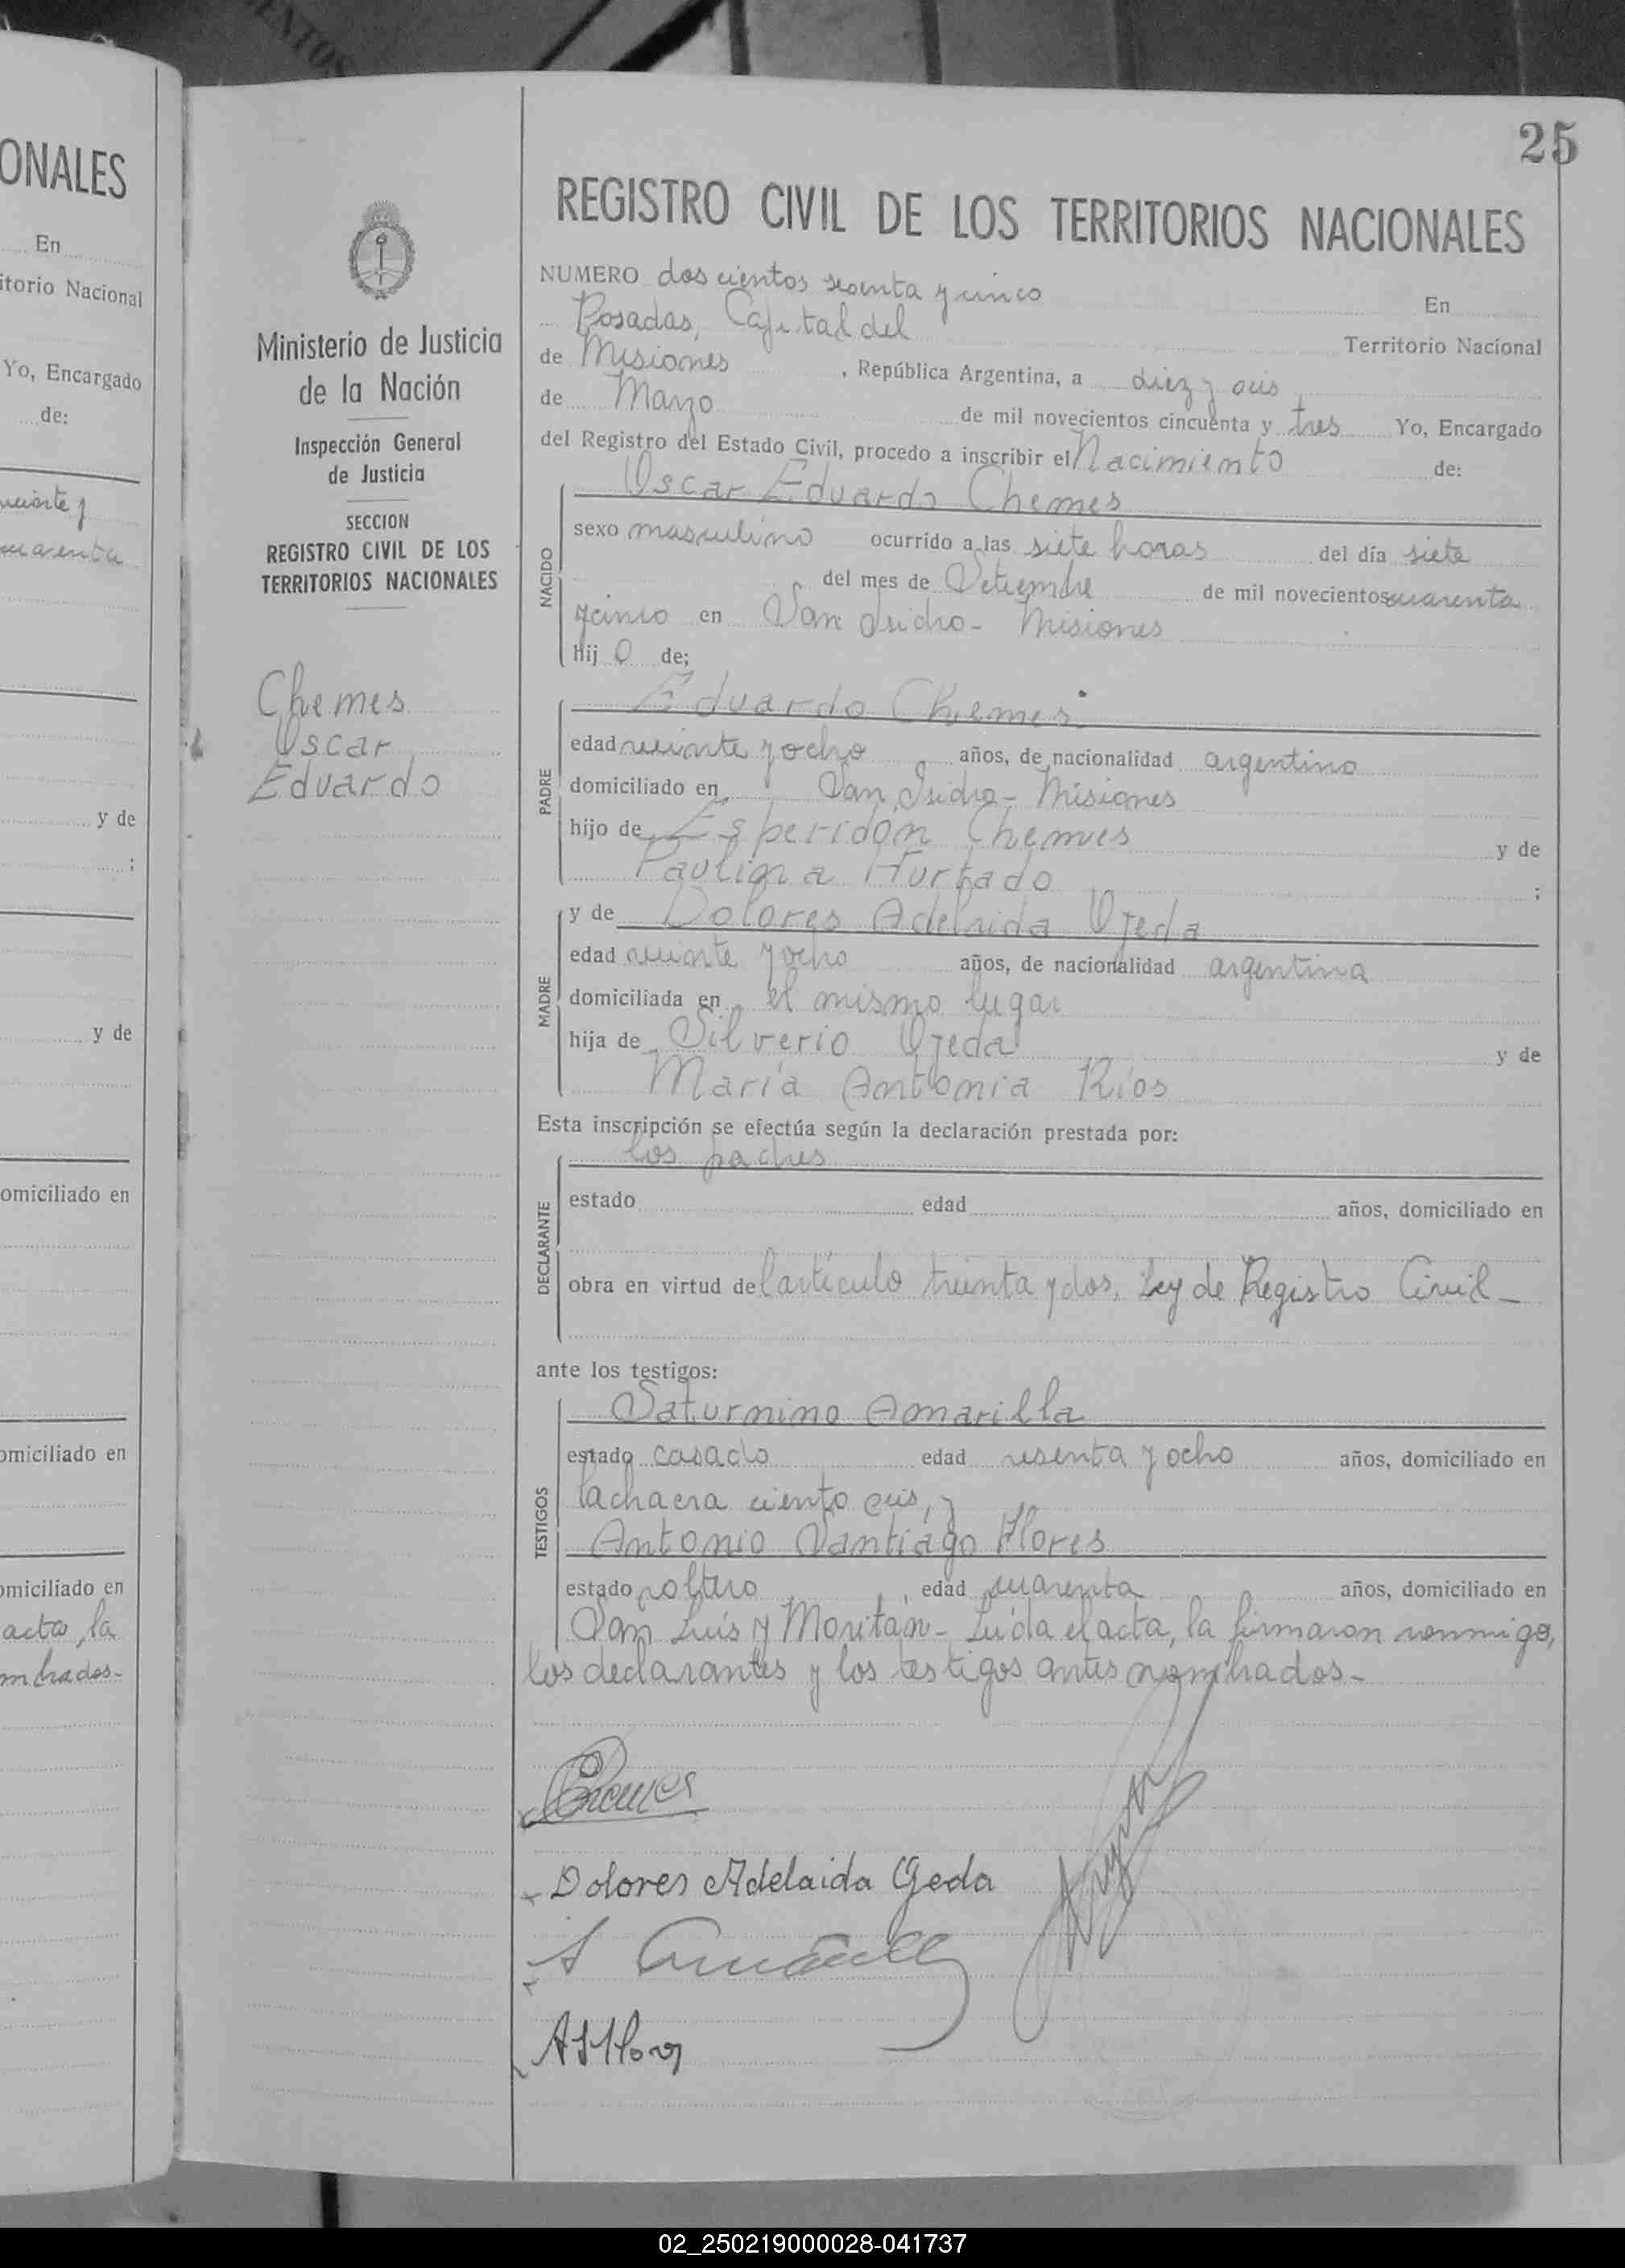 ONALES
En
itorio Nacional
Yo, Encargado
de:
y de
;
y de
omiciliado en
omiciliado en
omiciliado en
acta, la
mbrados-
Ministerio de Justicia
de la Nación
Inspección General
de Justicia
SECCION
REGISTRO CIVIL DE LOS
TERRITORIOS NACIONALES
Chemes
Oscar
Eduardo
25
REGISTRO CIVIL DE LOS TERRITORIOS NACIONALES
NUMERO doscientos sesenta y cinco En
Posadas, Capital del Territorio Nacional
de Misiones , República Argentina, a diez y seis
de Marzo de mil novecientos cincuenta y tres Yo, Encargado
del Registro del Estado Civil, procedo a inscribir el Nacimiento de:
Oscar Eduardo Chemes
NACIDO
sexo masculino ocurrido a las siete horas del día siete
del mes de Setiembre de mil novecientos cuarenta
y cinco en San Isidro - Misiones
hij o de;
Eduardo Chemes
PADRE
edad veinte y ocho años, de nacionalidad argentino
domiciliado en San Isidro - Misiones
hijo de Esperidon Chemes y de
Paulina Hurtado ;
MADRE
y de Dolores Adelaida Ojeda
edad veinte y ocho años, de nacionalidad argentina
domiciliada en el mismo lugar
hija de Silverio Ojeda y de
María Antonia Ríos
Esta inscripción se efectúa según la declaración prestada por:
los padres
DECLARANTE
estado edad años, domiciliado en
obra en virtud del artículo treinta y dos, Ley de Registro Civil-
ante los testigos:
Saturnino Amarilla
TESTIGOS
estado casado edad sesenta y ocho años, domiciliado en
la chacra ciento seis, y
Antonio Santiago Flores
estado soltero edad cuarenta años, domiciliado en
San Luis y Moritán - Leída el acta, la firmaron conmigo,
los declarantes y los testigos antes nombrados-
Chemes
Dolores Adelaida Ojeda
S Amarilla
ASFlores
02_250219000028-041737